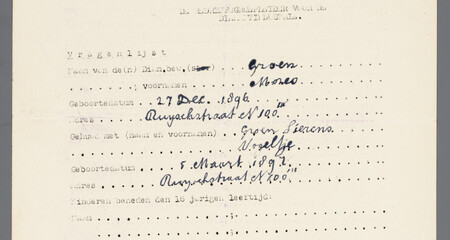 Vragenlijst
Naam van de(n) Dian.bew.(ster) Groen
; voornamen Mozes
Geboortedatum 27 Dec. 1896
Adres Ruyschstraat N 100 III
Gehuwd met (naam en voornamen) Groen
Geboortedatum 5 Maart 189
Adres Ruyschstraat N 100 III
Kinderen beneden den 16 jarigen leeftijd:
Naam